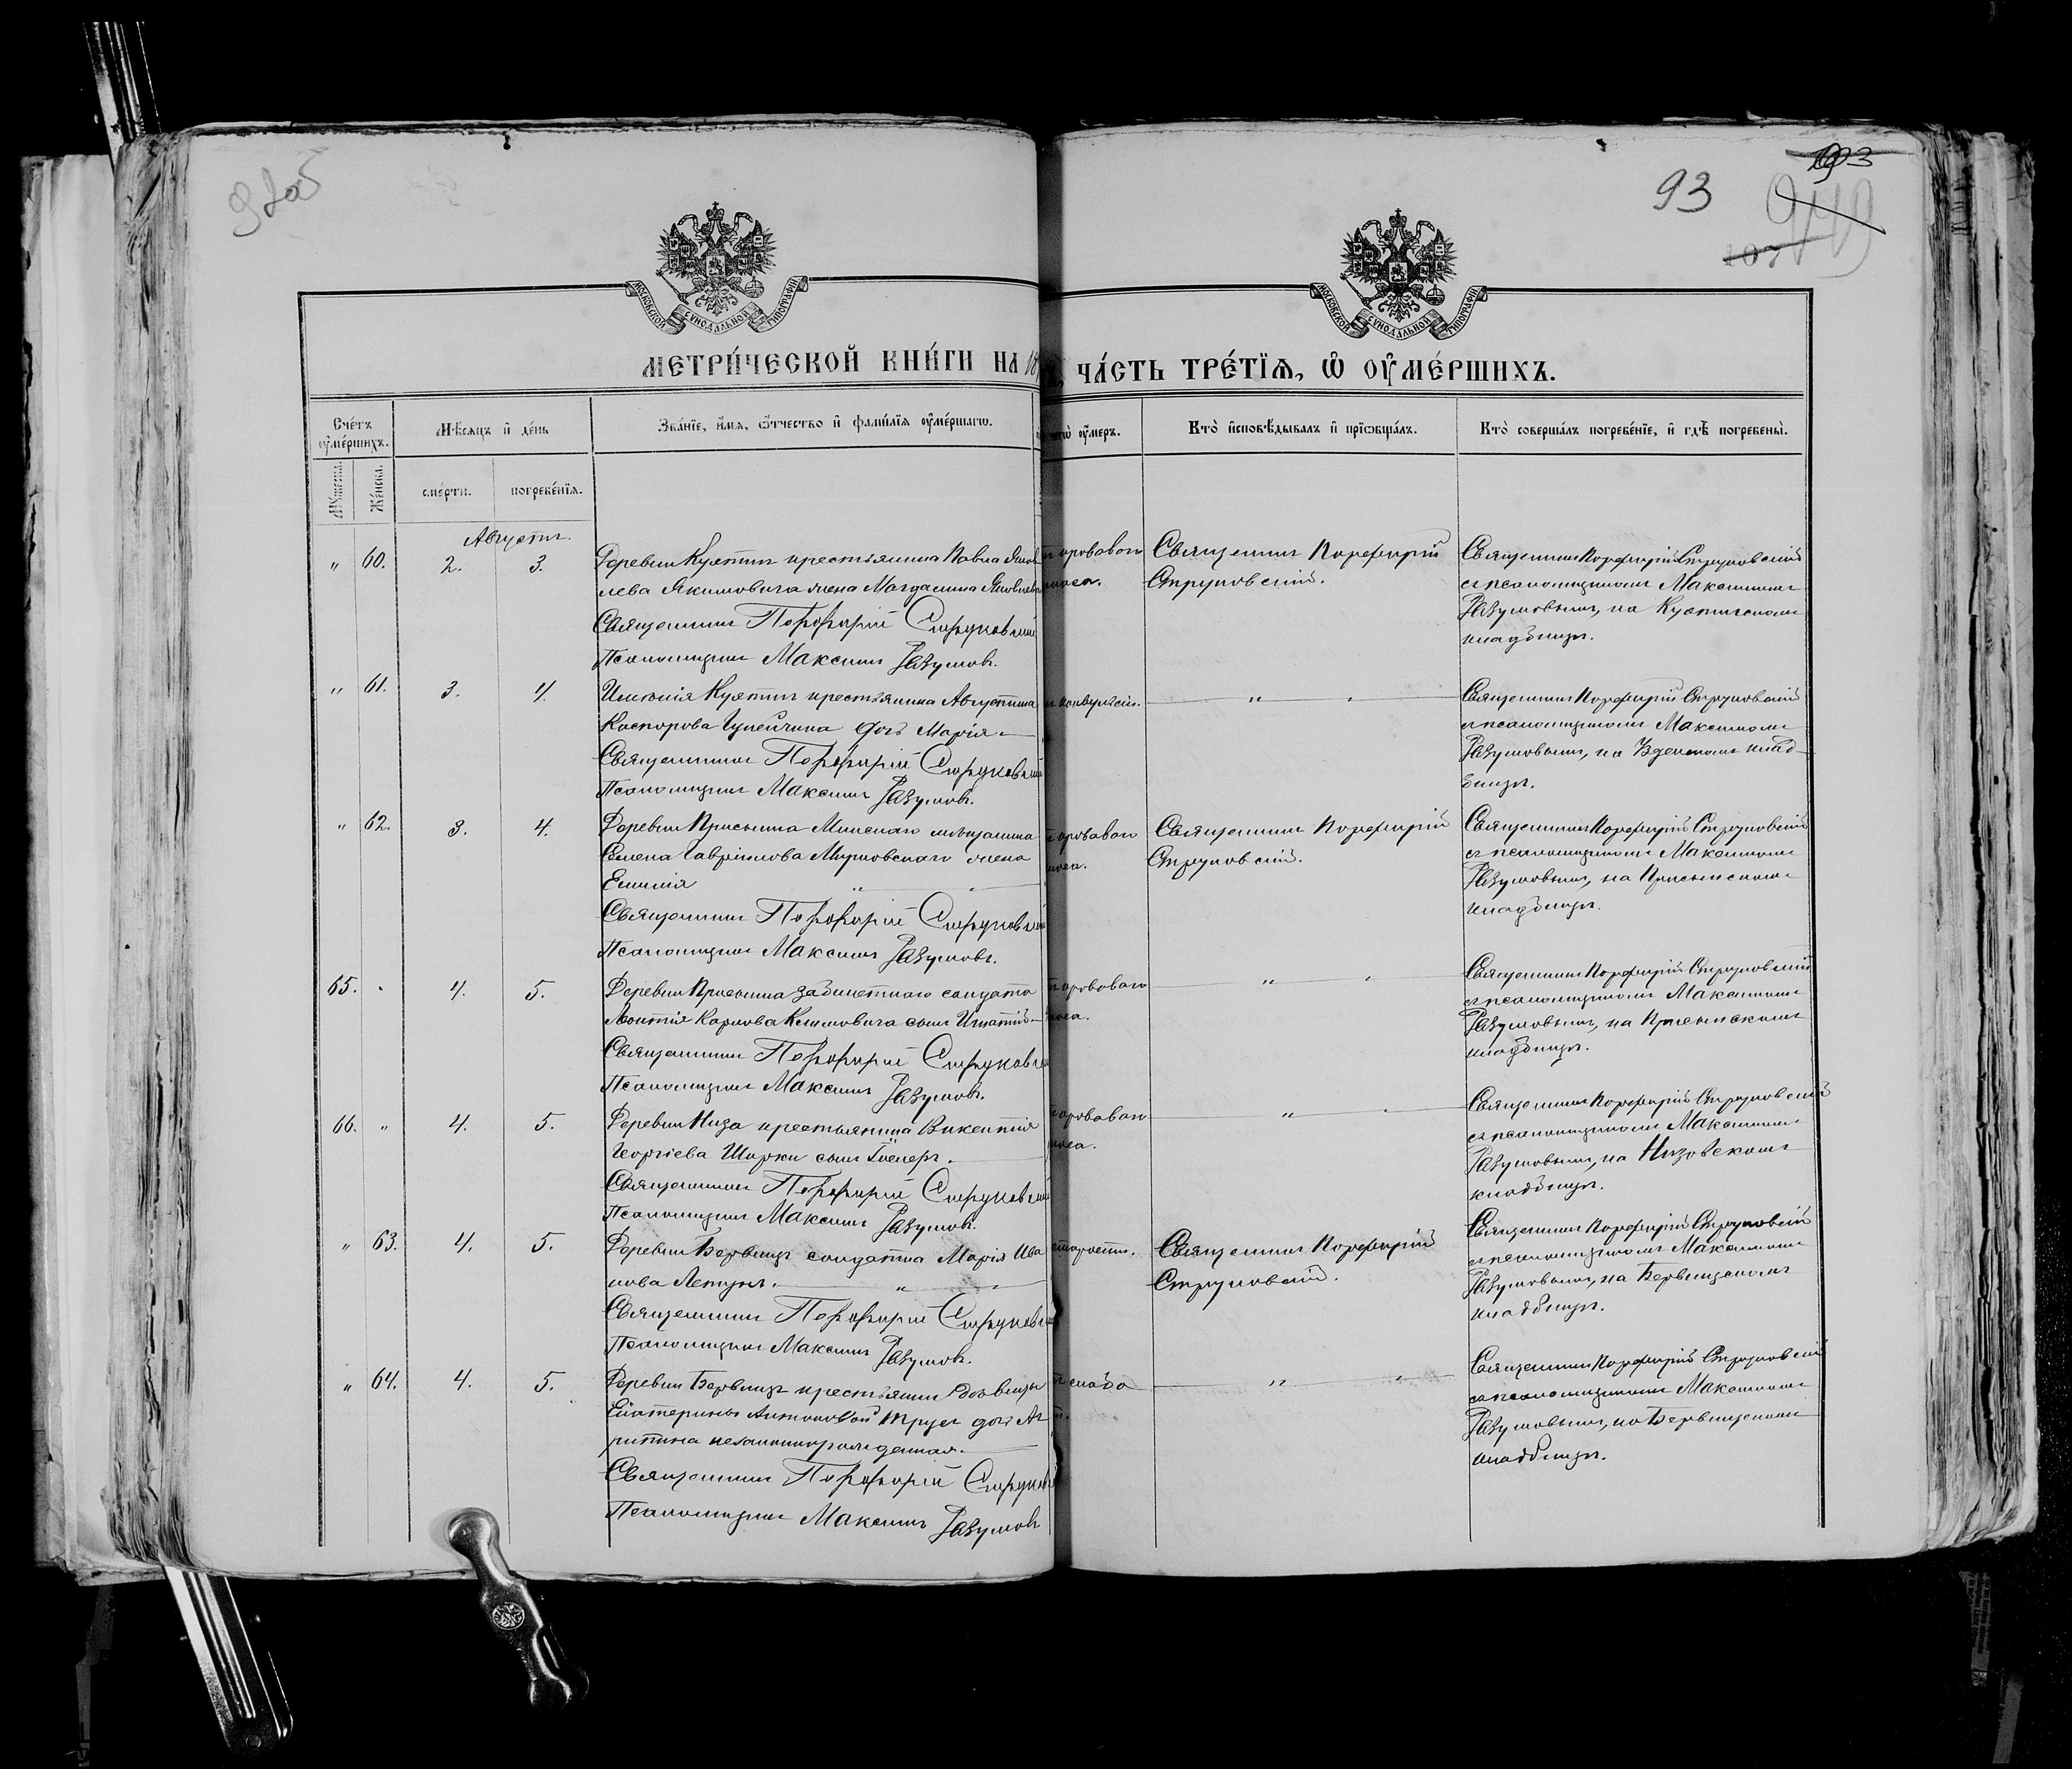 93
МОСКОВСКОЙ СУНОДАЛЬНОЙ ТИПОГРАФІИ
МОСКОВСКОЙ СУНОДАЛЬНОЙ ТИПОГРАФІИ
МЕТРИ́ЧЕСКОЙ КНИ́ГИ НА 18
ЧА́СТЬ ТРЕ́ТЇѦ, Ѡ҆ ОУ҆МЕ́РШИХЪ.
Сче́тъ оу҆ме́ршихъ.
Мѣсяцъ и҆ де́нь
Зва́нїе, и҆́мѧ, ѻ҆́тчество и҆ фами́лїѧ оу҆ме́ршагѡ.
чегѡ̀ оу҆́меръ.
Кто̀ и҆сповѣ́дывалъ и҆ прїѡбща́лъ.
Кто̀ соверша́лъ погребе́нїе, и҆ гдѣ̀ погребены̀.
Же́нска.
сме́рти.
погребе́нїѧ.
Августъ.
„ 60. 2. 3. Деревни Куктин крестьянина Павла
лева Якимовича жена Магдалина Яковлева
Священникъ Порфирій Струковскій
Псаломщикъ Максимъ Разумовъ.
кроваваго
поноса.
Священникъ Порфирій
Струковскій.
Священникъ Порфирій Струковскій
съ псаломщикомъ Максимомъ
Разумовымъ, на
кладбищѣ.
„ 61. 3. 4. крестьянина Августина
Каспорова дочь Марія
Священникъ Порфирій Струковскій
Псаломщикъ Максимъ Разумовъ.
конвульсіи. „ „
Священникъ Порфирій Струковскій
съ псаломщикомъ Максимомъ
Разумовымъ, на Узденскомъ клад-
бищѣ.
„ 62. 3. 4. Деревни Присынка Минскаго мѣщанина
Семена Гаврилова жена
Емилія „ „
Священникъ Порфирій Струковскій
Псаломщикъ Максимъ Разумовъ.
кроваваго
поноса.
Священникъ Порфирій
Струковскій.
Священникъ Порфирій Струковскій
съ псаломщикомъ Максимомъ
Разумовымъ, на Присынскомъ
кладбищѣ.
65. „ 4. 5. Деревни Присынка забилетнаго солдата
Леонтія Карпова Климовича сынъ Игнатій
Священникъ Порфирій Струковскій
Псаломщикъ Максимъ Разумовъ.
кроваваго
поноса.
„ „
Священникъ Порфирій Струковскій
съ псаломщикомъ Максимомъ
Разумовымъ, на Присынскомъ
кладбищѣ.
66. „ 4. 5. Деревни Низа крестьянина Викентія
Георгіева сынъ
Священникъ Порфирій Струковскій
Псаломщикъ Максимъ Разумовъ.
кроваваго
поноса.
„ „
Священникъ Порфирій Струковскій
съ псаломщикомъ Максимомъ
Разумовымъ, на Низовскомъ
кладбищѣ.
„ 63. 4. 5. Деревни солдатка Марія Ива
нова Летунъ. „ „
Священникъ Порфирій Струковскій
Псаломщикъ Максимъ Разумовъ.
старости.
Священникъ Порфирій
Струковскій.
Священникъ Порфирій Струковскій
съ псаломщикомъ Максимомъ
Разумовымъ, на
кладбищѣ.
„ 64. 4. 5. Деревни крестьянки
Екатерины Антоновой дочь Аг
рипина незаконнорожденная.
Священникъ Порфирій Струковскій
Псаломщикъ Максимъ Разумовъ
„ „
Священникъ Порфирій Струковскій
съ псаломщикомъ Максимомъ
Разумовымъ, на
кладбищѣ.